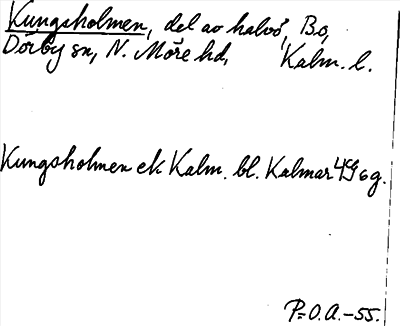 Kungsholmen, del av halvö, Bo,
Dörby sn, N. Möre hd, Kalm. l.
Kungsholmen ek Kalm. bl. Kalmar 4G6g.
P=O.A.-55.